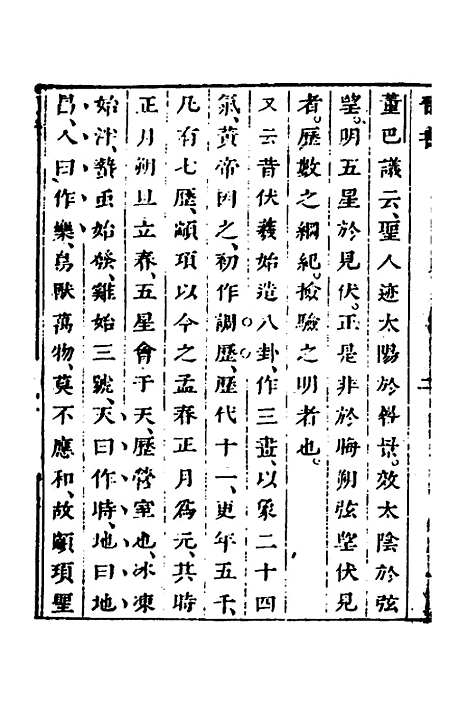 董巴議云、聖人迹太陽於晷景。效太陰於弦
望。明五星於見伏。正是非於晦朔弦望伏見
者。歷數之綱紀。檢驗之明者也。
又云昔伏羲始造八卦、作三畫、以象二十四
氣、黃帝因之、初作調歷、歷代十一、更年五千、
凡有七歷、顓頊以今之孟春正月爲元、其時
正月朔旦立春、五星會于天、歷營室也、冰凍
始泮、蟄虫始發、雞始三號、天曰作時、地曰地
昌、人曰、作樂、鳥獸萬物、莫不應和、故顓頊聖